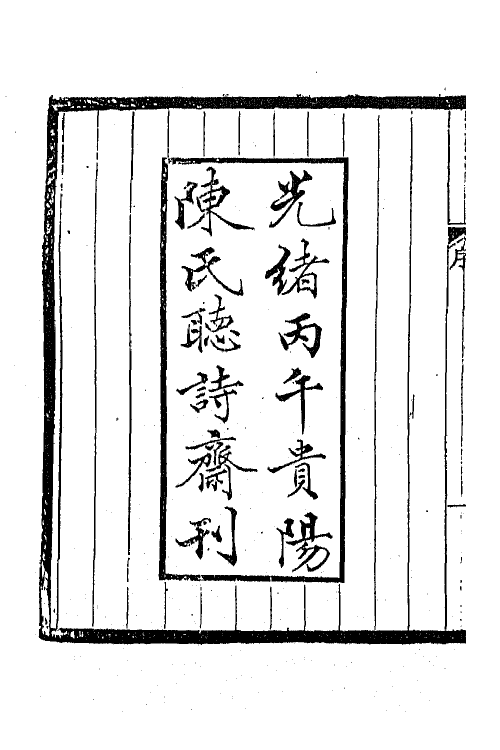 光緒丙午貴陽
陳氏聽詩齋刊